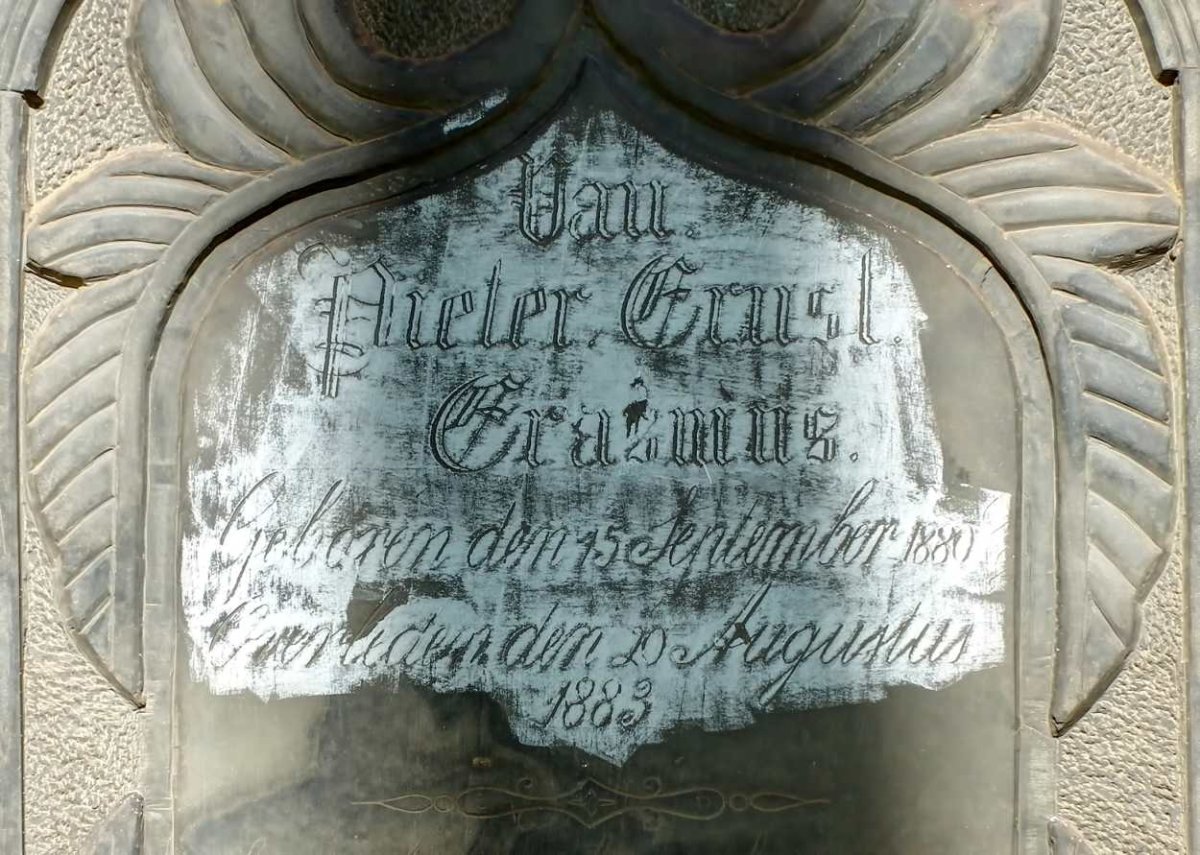 Van.
Pieter. Ernst.
Erazmus.
Geboren den 15 September 1880
Overleden den 29 Augustus
1883